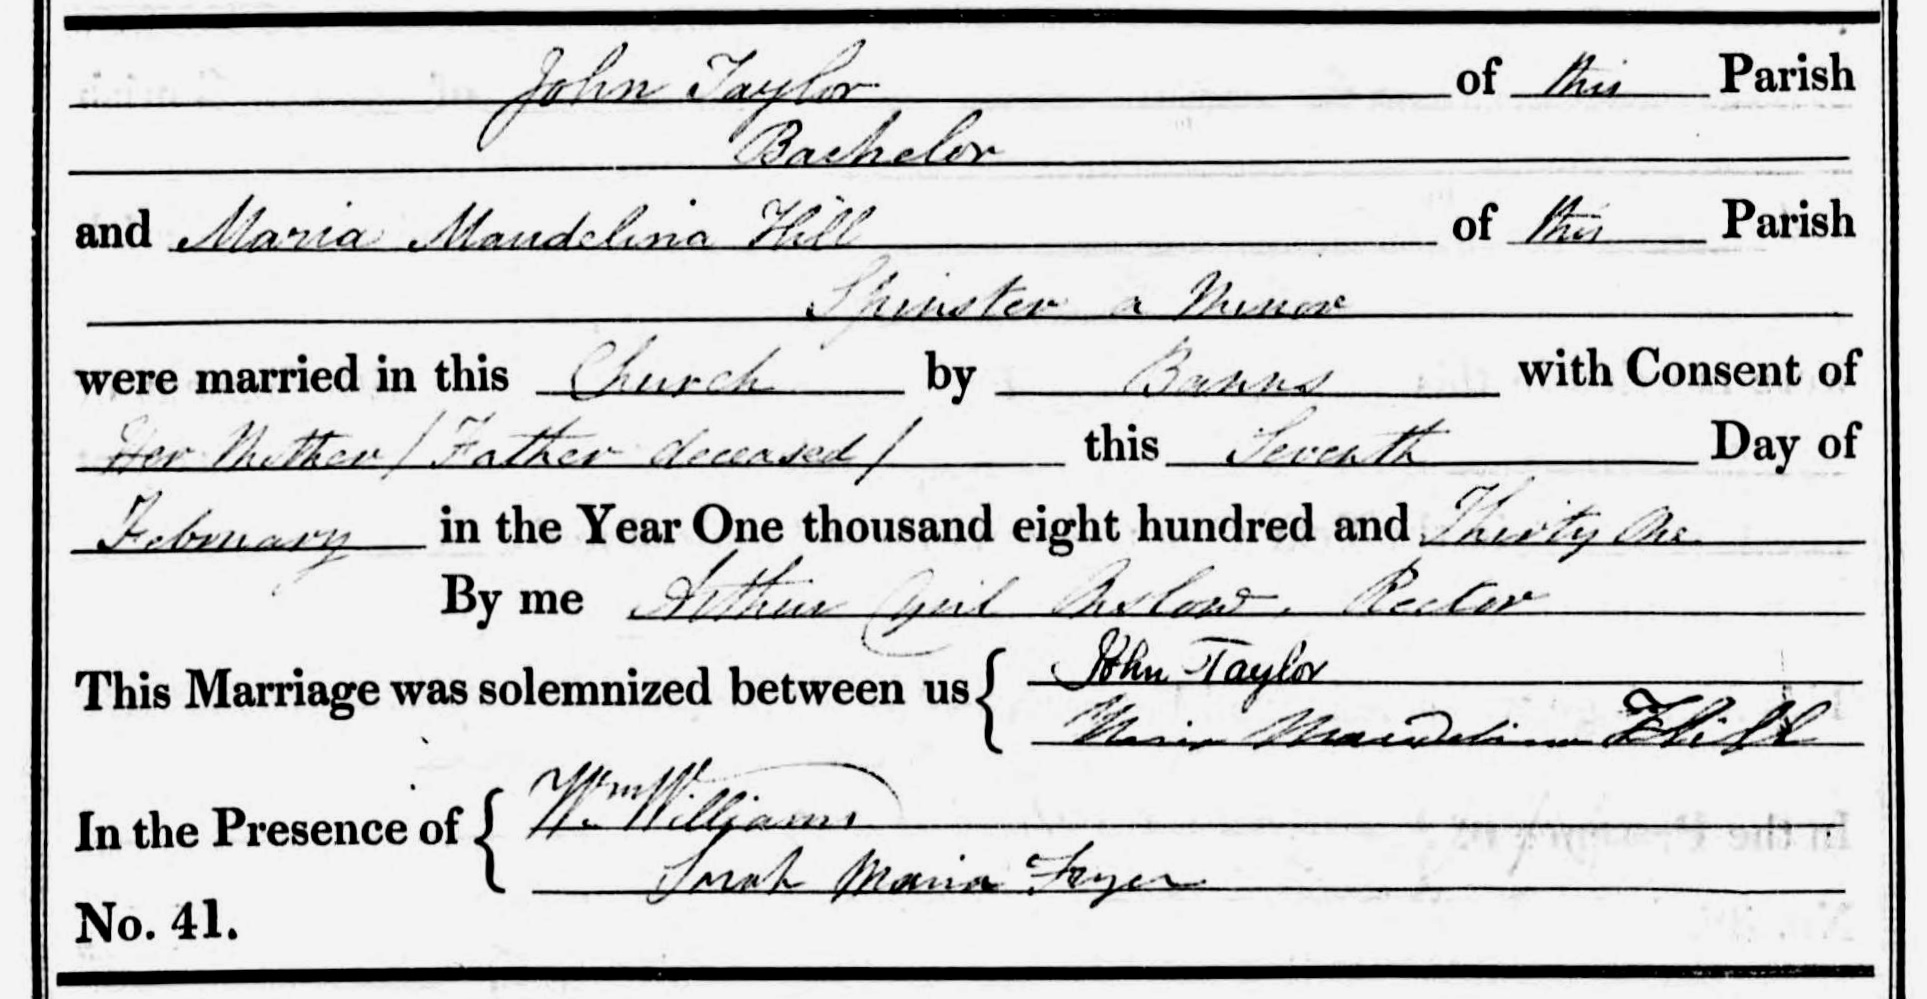 John Taylor of this Parish
Bachelor
and Maria Maudelina Hill of this Parish
Spinster a Minor
were married in this Church by Banns with Consent of
Her Mother / Father deceased / this Seventh Day of
February in the Year One thousand eight hundred and Thirty One
By me Arthur Cyril Onslow. Rector
This Marriage was solemnized between us { John Taylor
Maria Maudelina Hill
In the Presence of { Wm Williams
Sarah Maria Fryer
No. 41.